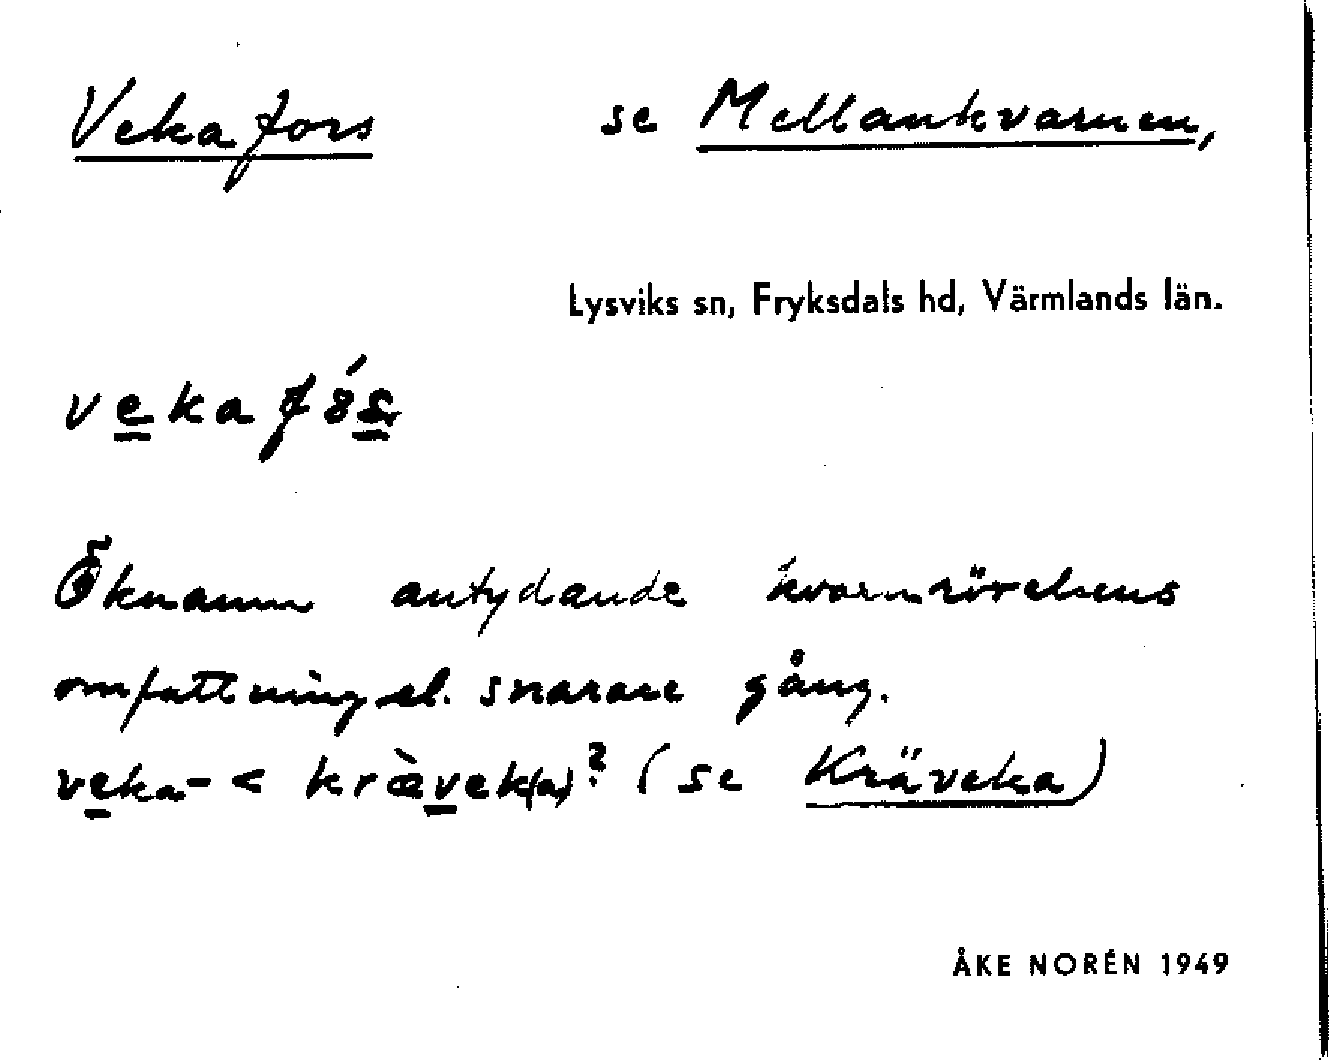 Vekafors se Mellankvarnen,
Lysviks sn, Fryksdals hd, Värmlands län.
vekafós
Öknamn antydande kvarnrörelsens
omfattning el. snarare gång.
veka- < kràvek(a)? (se Kräveka)
ÅKE NORÉN 1949